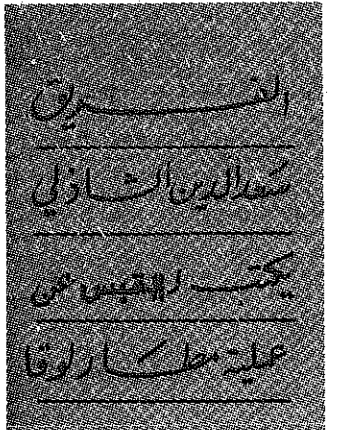 الفريق
سعد الدين الشاذلي
يكتب للقبس عن
عملية مطار لارنكا